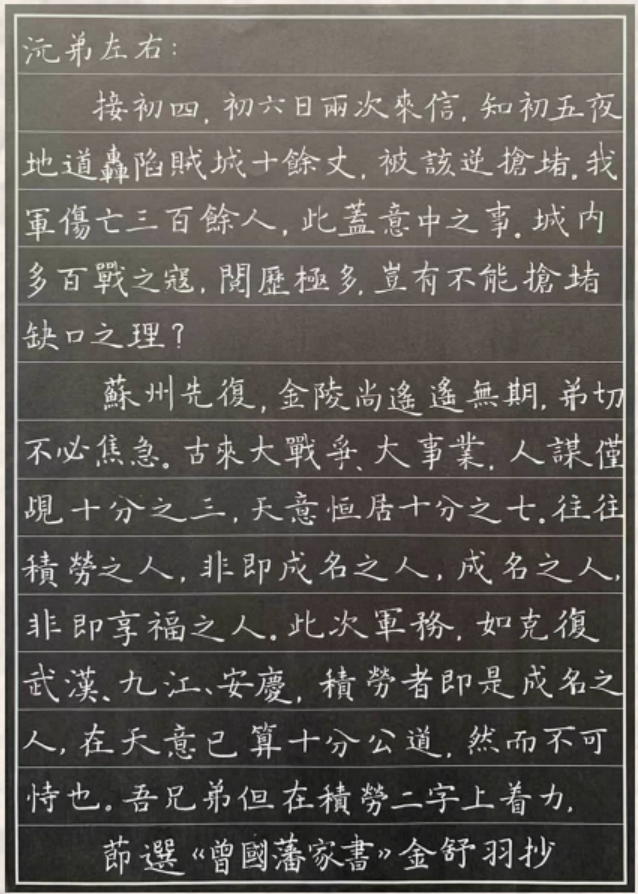 沅弟左右：
接初四，初六日兩次來信，知初五夜
地道轟陷賊城十餘丈，被該逆搶堵。我
軍傷亡三百餘人，此蓋意中之事。城内
多百戰之寇，閱歷極多，豈有不能搶堵
缺口之理？
蘇州先復，金陵尚遙遙無期，弟切
不必焦急。古來大戰爭、大事業，人謀僅
覥十分之三，天意恒居十分之七。往往
積勞之人，非即成名之人，成名之人，
非即享福之人。此次軍務，如克復
武漢、九江、安慶，積勞者即是成名之
人，在天意已算十分公道，然而不可
恃也。吾兄弟但在積勞二字上着力，
節選《曾國藩家書》金舒羽抄